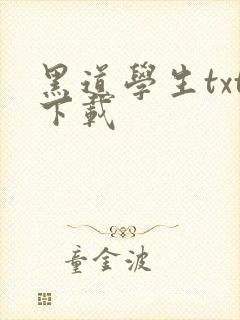 黑道學生txt
下載
童金波